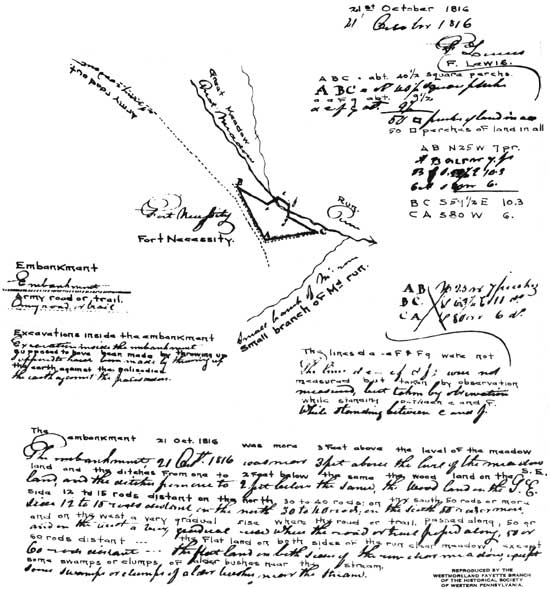 21st October 1816
21 October 1816
F. Lewis
F. LEWIS.
A B C . abt. 40 1/2 square perchs.
A B C . abt 40 1/2 square perchs
a e F g abt. 9 1/2
a e f g abt. 9 1/2
50 □ perches of land in all
50 □ perches of land in all
A B N25W 7 pr.
A B
10.3
6.
B C S59 1/2 E 10.3
C A S80W 6.
Great Meadow
Great Meadow
Run.
Run
Army road out
B
C
Fort Necessity
Fort Necessity.
small branch of Md run
Small branch of Md run.
Embankment
Embankment
Army road or trail.
Army road or trail
Excavations inside the embankment
Excavations inside the embankment
supposed to have been made by throwing up
supposed to have been made by throwing up
the earth against the palisades.
the earth against the palisades.
A B N 25 W 7 perches
B C
C A S 80 W 6 do.
The lines d e - e F & F g were not
The lines d e - ef & fg: were not
measured but taken by observation
measured, but taken by observation
while standing between e and F.
While standing between e and f.
The embankment 21 Oct. 1816 was more 3 Feet above the level of the meadow
The embankment, 21 Octr. 1816 was near 3 feet above the level of the meadow
land and the ditches from one to 2 Feet below the same the wood land on the S.E.
land, and the ditches from one to 2 feet below the same, the wood land on the S.E.
side 12 to 15 rods distant on the north 30 to 40 rods, on the south 50 rods or more
sides 12 to 15 rods distant on the north 30 to 40 rods, on the south 50 rods or more
and on the west a very gradual rise where the road or trail passed along, 50 or
and on the west a very gradual rise where the road or trail passed along, 50 or
60 rods distant -- the flat land on both sides of the run clear meadow, except
60 rods distant -- the flat land on both sides of the run clear meadow, except
some swamps or clumps of alder bushes near the stream.
some swamps or clumps of alder bushes near the stream.
REPRODUCED BY THE
WESTMORELAND FAYETTE BRANCH
OF THE HISTORICAL SOCIETY
OF WESTERN PENNSYLVANIA.